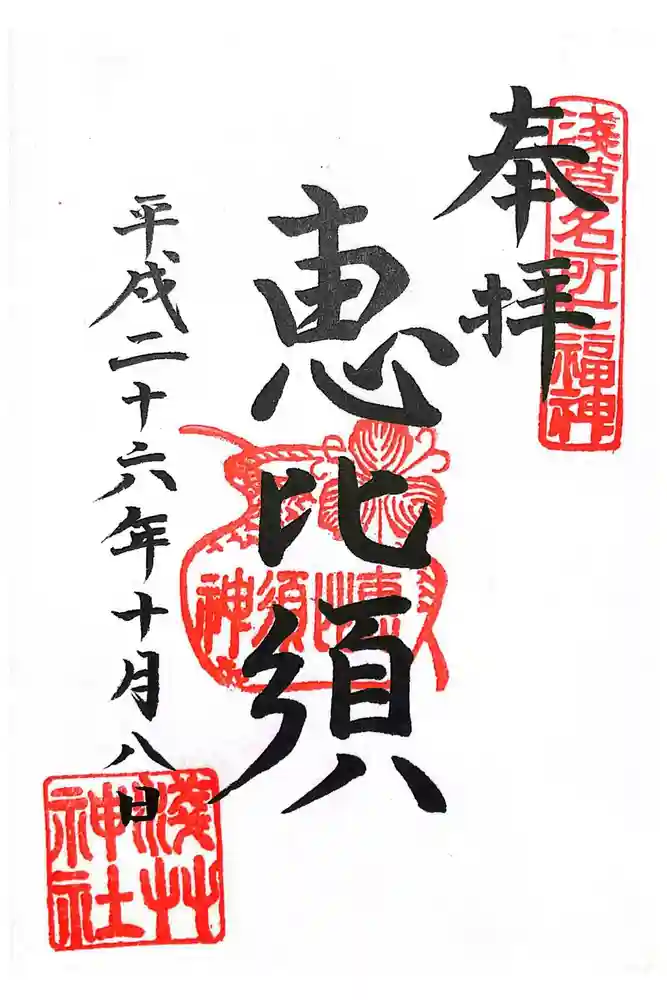 浅草名所七福神
奉拝
恵比須
恵比須神
平成二十六年十月八日
浅草神社